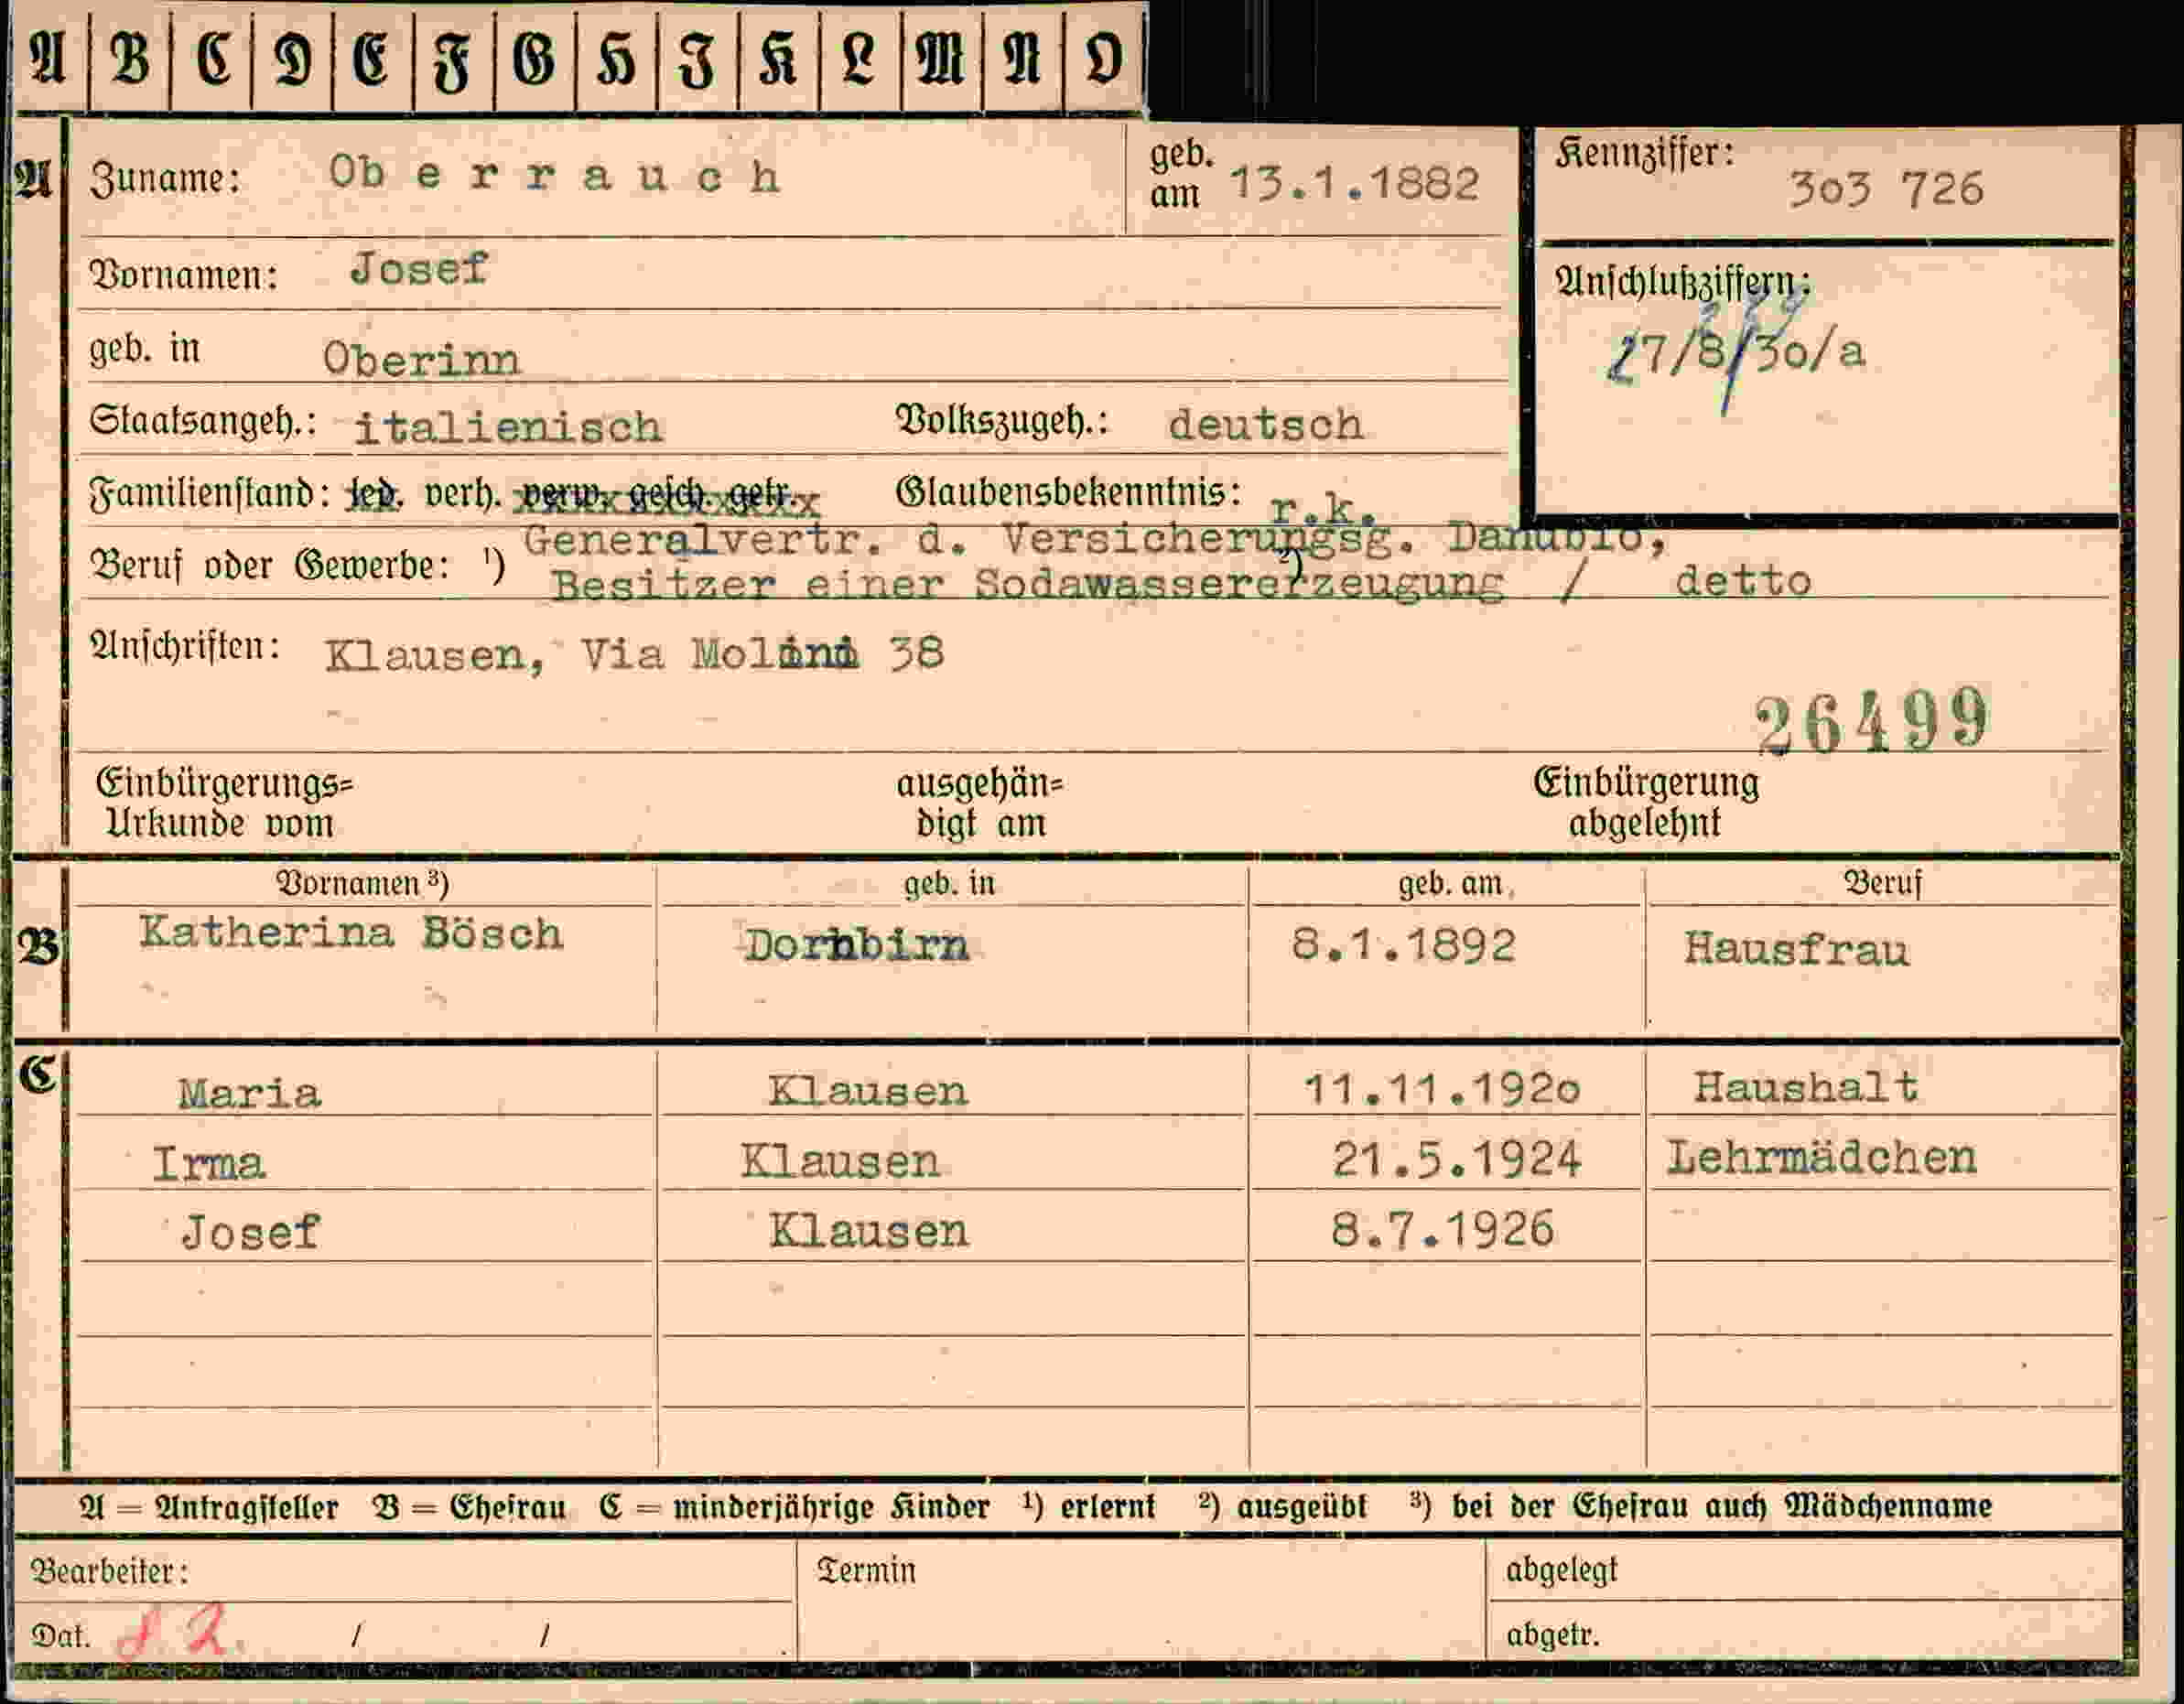 A B C D E F G H I K L M N O
A Zuname: Oberrauch geb. am 13.1.1882 Kennziffer: 303 726
Vornamen: Josef Anschlußziffern:
geb. in Oberinn 17/8/30/a
Staatsangeh.: italienisch Volkszugeh.: deutsch
Familienstand: led. verh. verw. gesch. getr. Glaubensbekenntnis: r.k.
Generalvertr. d. Versicherungsg. Danubio,
Beruf oder Gewerbe: ¹) Besitzer einer Sodawassererzeugung ²) / detto
Anschriften: Klausen, Via Molini 38
26499
Einbürgerungs= ausgehän= Einbürgerung
Urkunde vom digt am abgelehnt
Vornamen ³) geb. in geb. am Beruf
B Katherina Bösch Dornbirn 8.1.1892 Hausfrau
C Maria Klausen 11.11.1920 Haushalt
Irma Klausen 21.5.1924 Lehrmädchen
Josef Klausen 8.7.1926
A = Antragsteller B = Ehefrau C = minderjährige Kinder ¹) erlernt ²) ausgeübt ³) bei der Ehefrau auch Mädchenname
Bearbeiter: Termin abgelegt
Dat. / / abgetr.